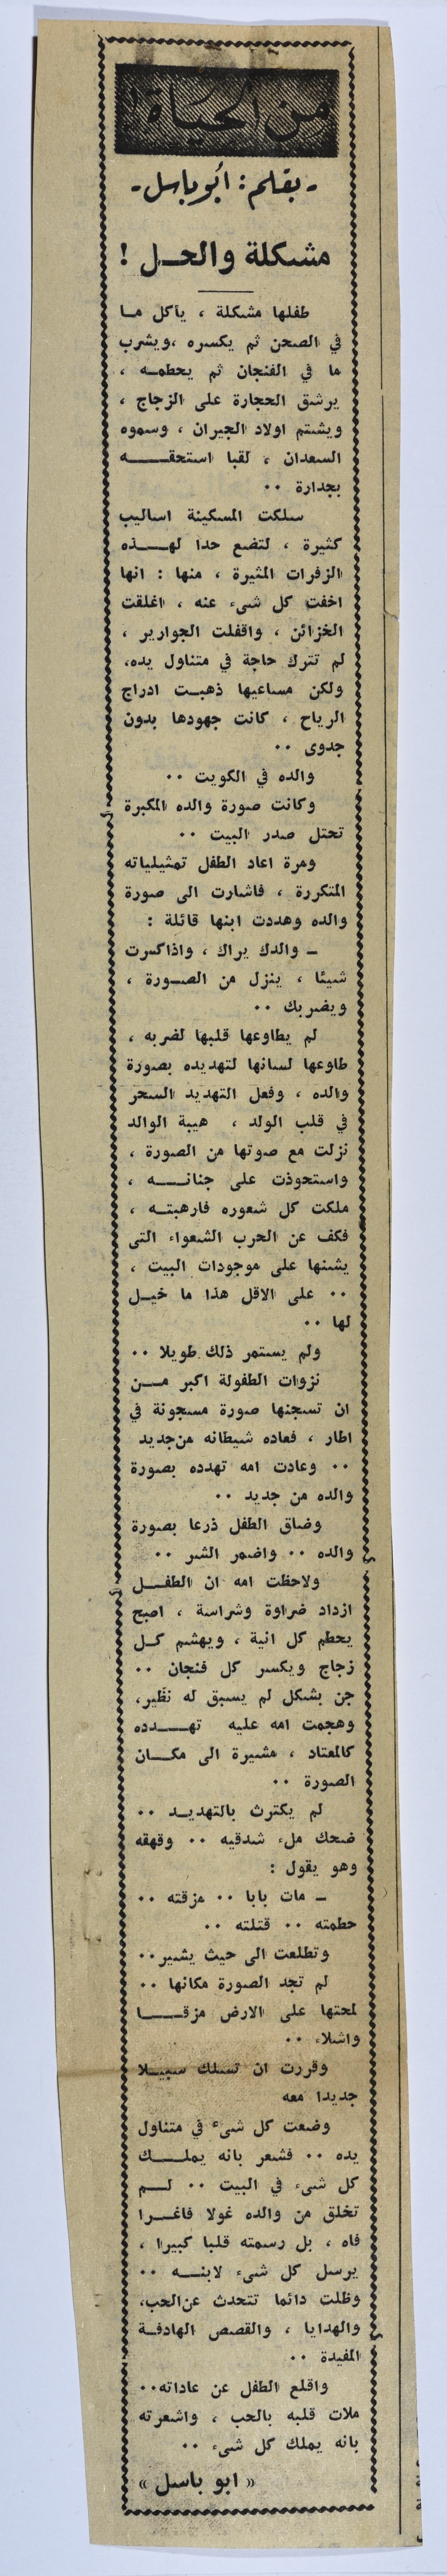 من الحياة !
- بقلم : أبو باسل -
مشكلة والحـل !
طفلها مشكلة ، يأكل مـا
في الصحن ثم يكسره ،ويشرب
ما في الفنجان ثم يحطمـه ،
يرشق الحجارة على الزجاج ،
ويشتم اولاد الجيران ، وسموه
السعدان ، لقبا استحقــــه
بجدارة ..
سلكت المسكينة اساليب
كثيرة ، لتضع حدا لهــذه
الزفرات المثيرة ، منها : انها
اخفت كل شيء عنه ، اغلقت
الخزائن ، واقفلت الجوارير ،
لم تترك حاجة في متناول يده،
ولكن مساعيها ذهبـت ادراج
الرياح ، كانت جهودها بدون
جدوى ..
والده في الكويت ..
وكانت صورة والده المكبرة
تحتل صدر البيت ..
ومرة اعاد الطفل تمثيلياته
المتكررة ، فاشارت الى صورة
والده وهددت ابنها قائلة :
ـ والدك يراك ، واذاكسرت
شيئا ، ينزل من الصـورة ،
ويضربك ..
لم يطاوعها قلبها لضربه ،
طاوعها لسانها لتهديده بصورة
والده ، وفعل التهديد السحر
في قلب الولد ، هيبة الوالد
نزلت مع صوتها من الصورة ،
واستحوذت على جنانـــه ،
ملكت كل شعوره فارهبتـه ،
فكف عن الحرب الشعواء التى
يشنها على موجودات البيت ،
.. على الاقل هذا ما خيـل
لها ..
ولم يستمر ذلك طويلا ..
نزوات الطفولة اكبر مــن
ان تسجنها صورة مسجونة في
اطار ، فعاده شيطانه من‌جديد
.. وعادت امه تهدده بصورة
والده من جديد ..
وضاق الطفل ذرعا بصورة
والده .. واضمر الشر ..
ولاحظت امه ان الطفــل
ازداد ضراوة وشراسة ، اصبح
يحطم كل انية ، ويهشم كـل
زجاج ويكسر كل فنجان ..
جن بشكل لم يسبق له نظير،
وهجمت امه عليه تهــدده
كالمعتاد ، مشيرة الى مكـان
الصورة ..
لم يكترث بالتهديـد ..
ضحك ملء شدقيه .. وقهقه
وهو يقول :
ـ مات بابا .. مزقته ..
حطمته .. قتلته ..
وتطلعت الى حيث يشير..
لم تجد الصورة مكانها ..
لمحتها على الارض مزقــا
واشلاء ..
وقررت ان تسلك سبيـلا
جديدا معه
وضعت كل شيء في متناول
يده .. فشعر بانه يملــك
كل شيء في البيت .. لــم
تخلق من والده غولا فاغـرا
فاه ، بل رسمته قلبا كبيرا ،
يرسل كل شيء لابنــه ..
وظلت دائما تتحدث عن‌الحب،
والهدايا ، والقصص الهادفـة
المفيدة ..
واقلع الطفل عن عاداته..
ملات قلبه بالحب ، واشعرته
بانه يملك كل شيء ..
« ابو باسل »